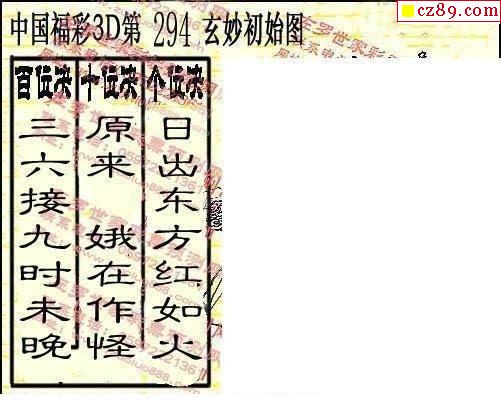 cz89.com
中国福彩3D第 294 玄妙初始图
百位决 十位决 个位决
三六接九时未晚
原来 娥在作怪
日出东方红如火